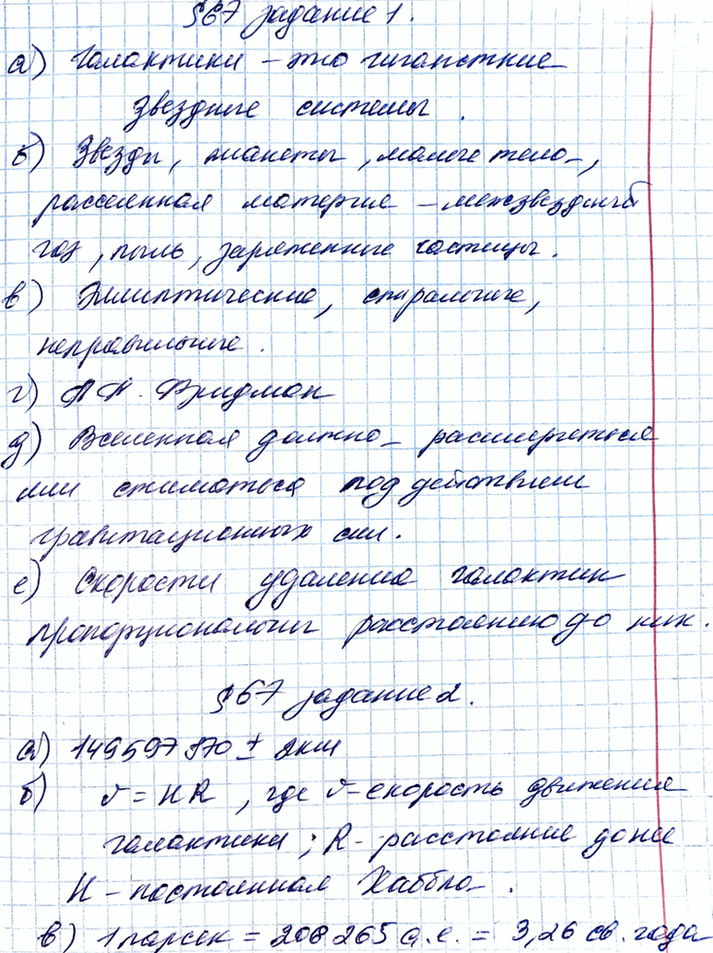 §67 задание 1.
а) Галактики – это гигантские
звездные системы.
б) Звезды, планеты, малые тела,
рассеянная материя – межзвездный
газ, пыль, заряженные частицы.
в) Эллиптические, спиральные,
неправильные.
г) А.А. Фридман
д) Вселенная должна расширяться
или сжиматься под действием
гравитационных сил.
е) Скорости удаления галактик
пропорциональны расстоянию до них.
§67 задание 2.
а) 149597870 ± 2км
б) v = HR, где v – скорость движения
галактики; R – расстояние до нее
H – постоянная Хаббла.
в) 1 парсек = 208265 а.е. = 3,26 св. года